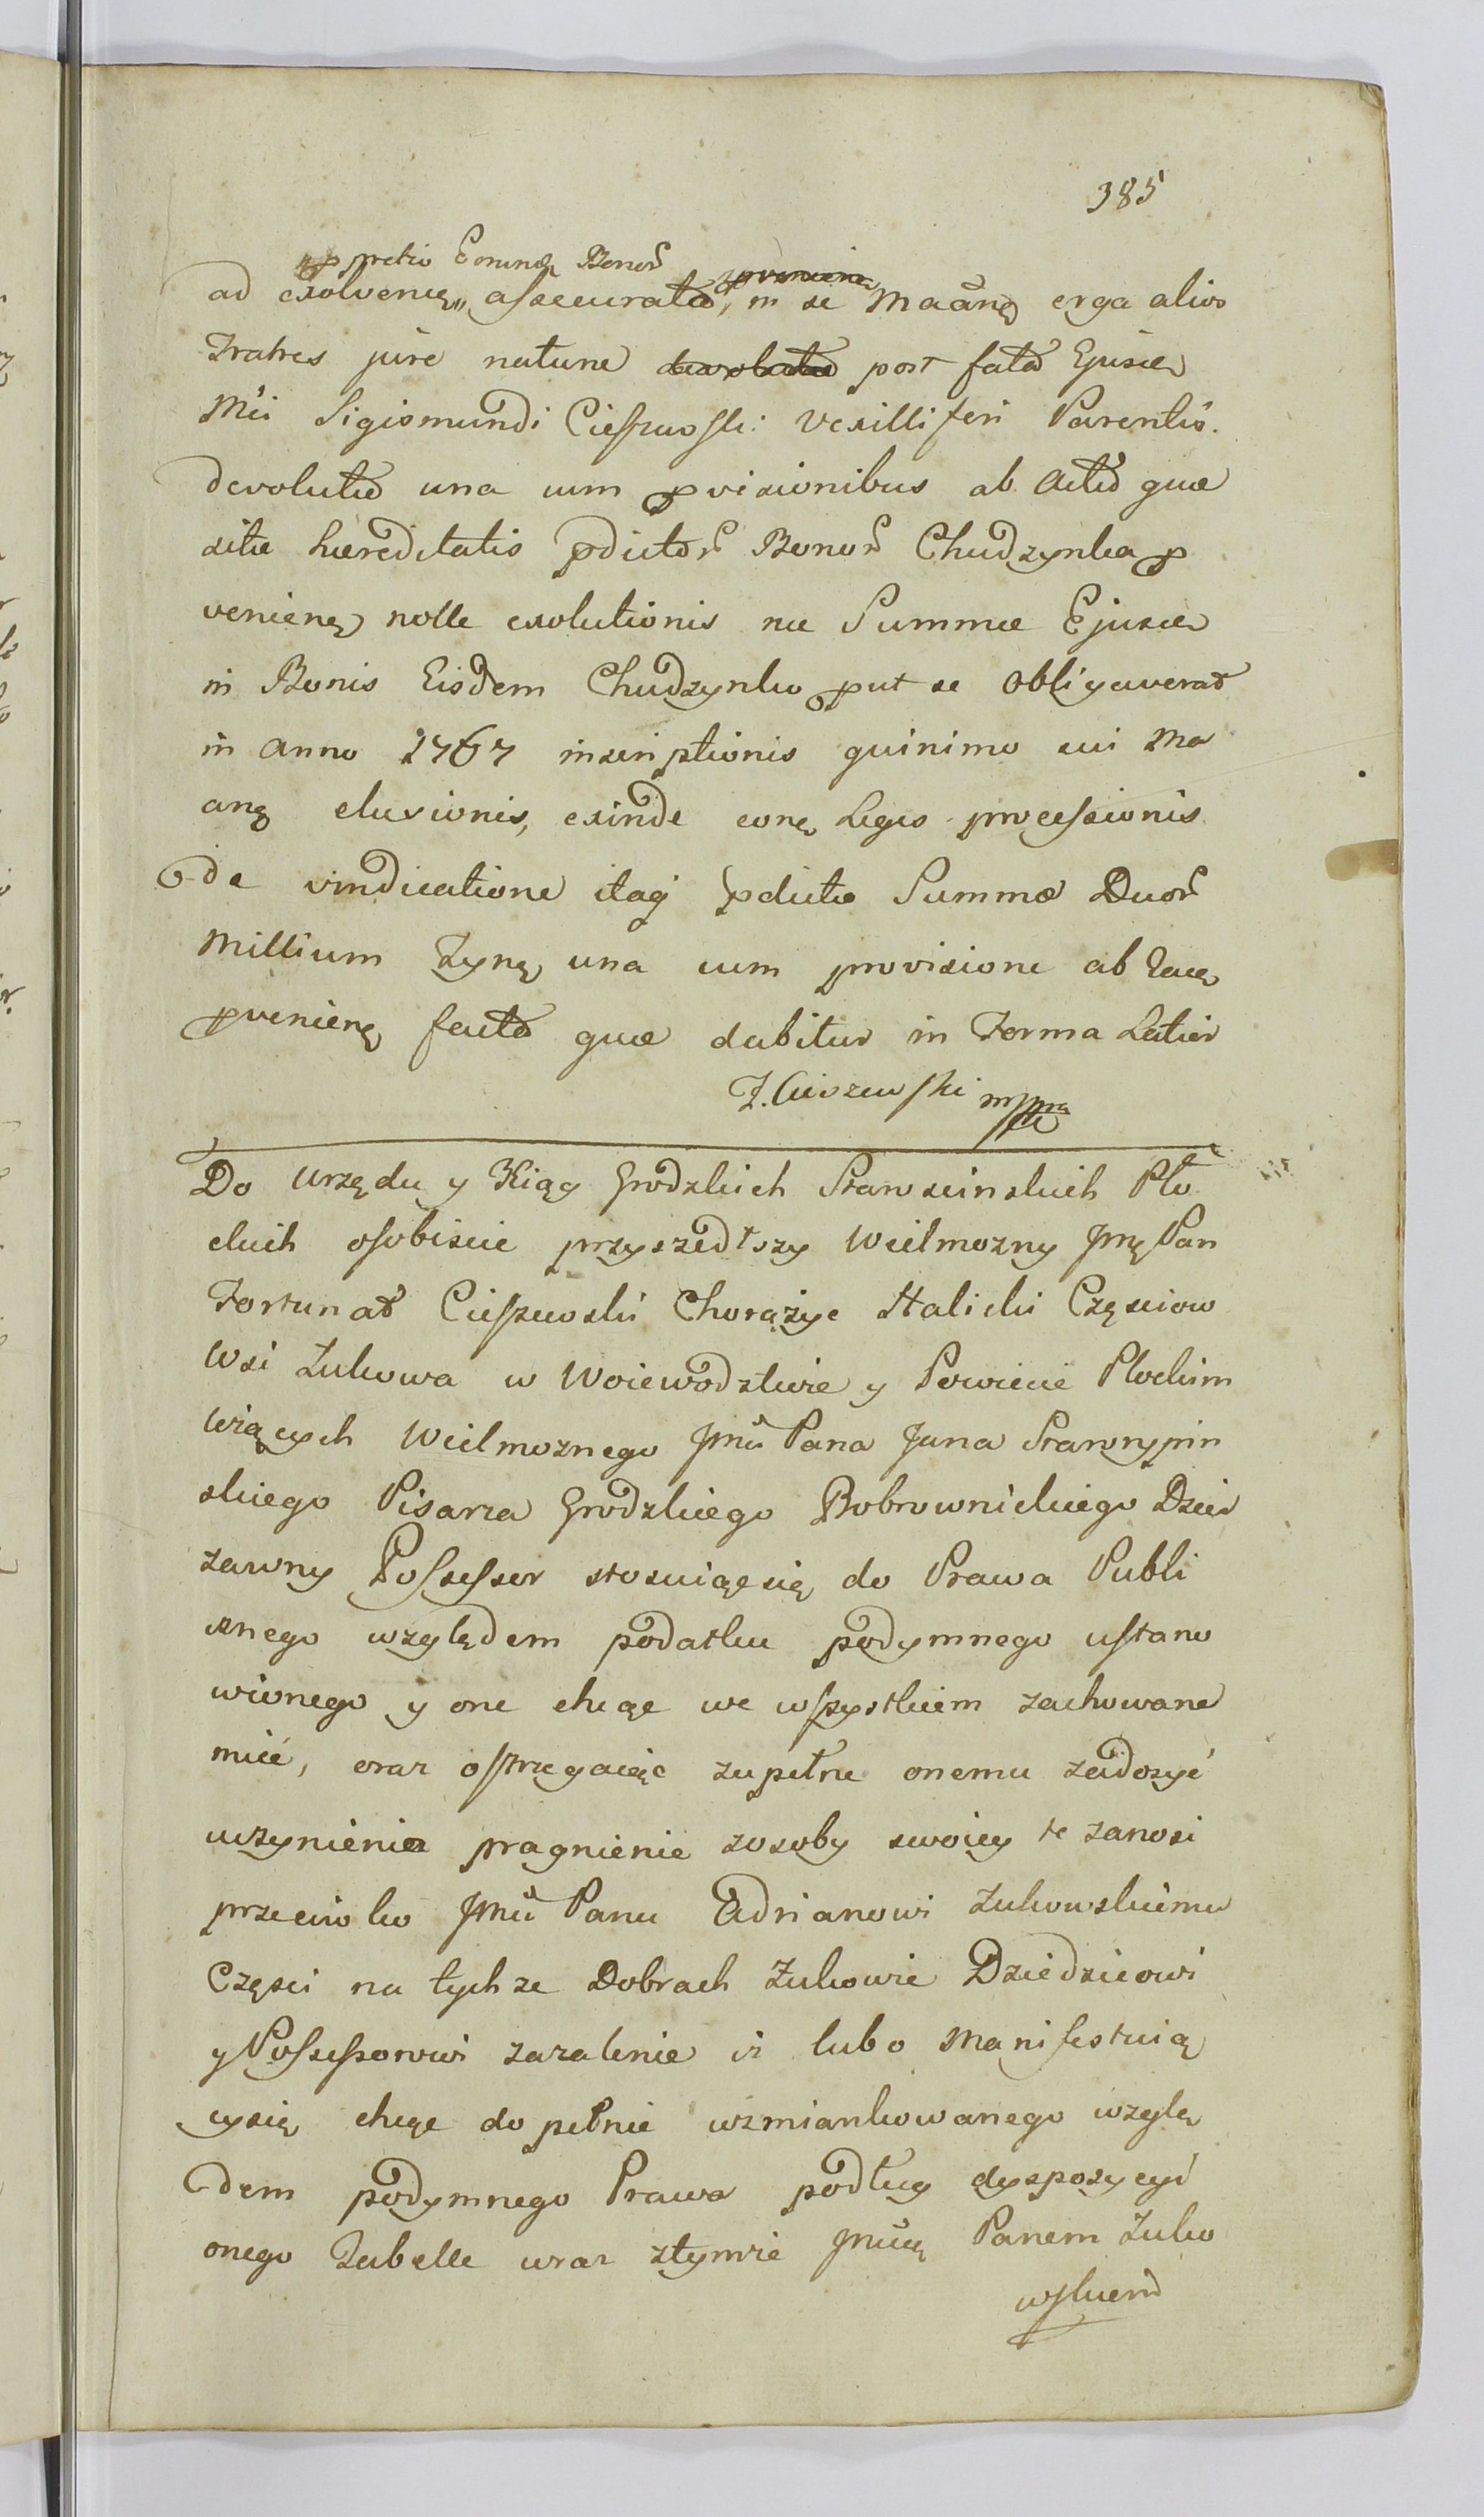 385
pretio Eorund Bonor
ad exolvend, assecurata, in se Maand erga alios
Fratres jure nature devoluta post fata Ejusd
Mci Sigismundi Cieszewski Vexilliferi Parentis.
devoluta una cum pvisionibus ab acta que
sitae haereditatis pdictor Bonor Chudzynka p
veniend nolle exolutionis nae Summae Ejusd
in Bonis Eisdem Chudzynko put se obligaverat
in Anno 1767 inscriptionis quinimo sui Ma
and elusionis, exinde cond Legis processionis
de vindicatione itaq pdictae Summae Duor
Millium Tynf una cum provisione ab Ead
pvenien facta quae dabitur in Forma Latior
F. Cieszewski mppa
Do Urzędu y Xiąg Grodzkich Starościnskich Pło
ckich osobiscie przyszedłszy Wielmozny Jmć Pan
Fortunat Cieszewski Chorążyc Halicki Częsciow
Wsi Żukowa w Woiewodztwie y Powiecie Płockim
Wiących Wielmoznego Jmci Pana Jana Starorypin
skiego Pisarza Grodzkiego Bobrownickiego Dzier
zawny Possessor stosuiąc się do Prawa Publi
cznego względem podatku podymnego ustano
wionego y one chcąc we wszystkiem zachowane
mieć, oraz ostrzegaiąc zupełne onemu zadosyć
uczynienia pragnienie zosoby swoiey te zanosi
przeciwko Jmci Panu Adrianowi Żukowskiemu
Części na tychze Dobrach Żukowie Dziedzicowi
y Possessorowi zazalenie iz lubo Manifestuią
cysię chcąc do pełnie wzmiankowanego wzglę
dem podymnego Prawa podług dyspozycyi
onego Tabelle wraz ztymże Jmcią Panem Żuko
wskiem